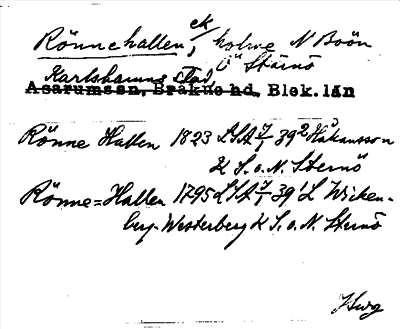 Rönnehallen, ek holme N Boön
Ö Stärnö
Karlshamns stad
Asarumssn, Bräkne hd, Blek. län
Rönne Hallen 1823 LSA 7/1 39² Håkansson
K S. o. N. Sternö
Rönne=Hallen 1795 LSA 7/1 39¹ L Wicken-
berg-Westerberg K S. o. N. Sternö